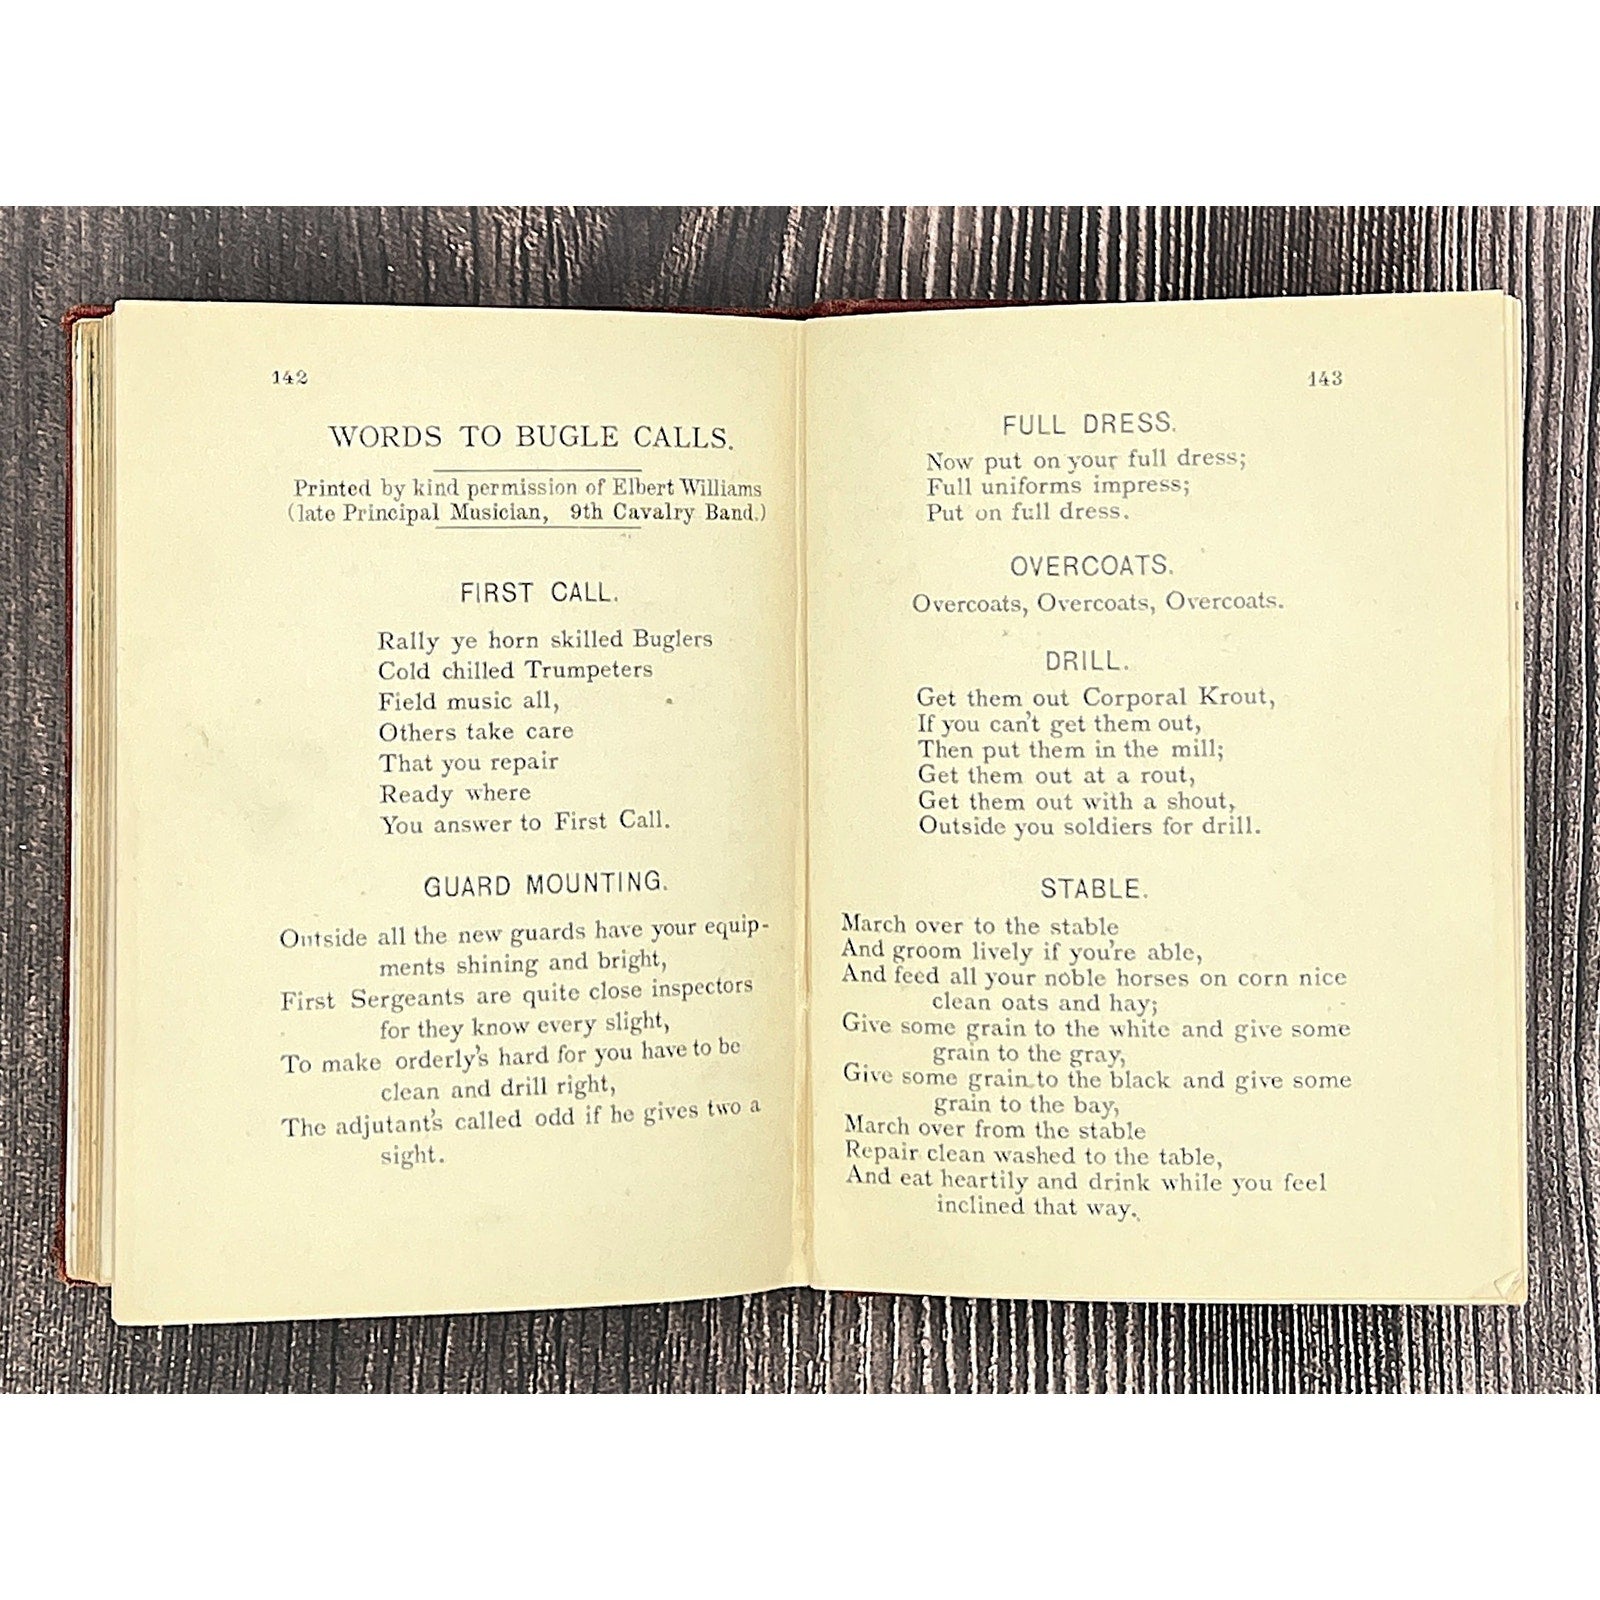 142
WORDS TO BUGLE CALLS.
Printed by kind permission of Elbert Williams
(late Principal Musician, 9th Cavalry Band.)
FIRST CALL.
Rally ye horn skilled Buglers
Cold chilled Trumpeters
Field music all,
Others take care
That you repair
Ready where
You answer to First Call.
GUARD MOUNTING.
Outside all the new guards have your equip-
ments shining and bright,
First Sergeants are quite close inspectors
for they know every slight,
To make orderly's hard for you have to be
clean and drill right,
The adjutant's called odd if he gives two a
sight.
143
FULL DRESS.
Now put on your full dress;
Full uniforms impress;
Put on full dress.
OVERCOATS.
Overcoats, Overcoats, Overcoats.
DRILL.
Get them out Corporal Krout,
If you can't get them out,
Then put them in the mill;
Get them out at a rout,
Get them out with a shout,
Outside you soldiers for drill.
STABLE.
March over to the stable
And groom lively if you're able,
And feed all your noble horses on corn nice
clean oats and hay;
Give some grain to the white and give some
grain to the gray,
Give some grain to the black and give some
grain to the bay,
March over from the stable
Repair clean washed to the table,
And eat heartily and drink while you feel
inclined that way.